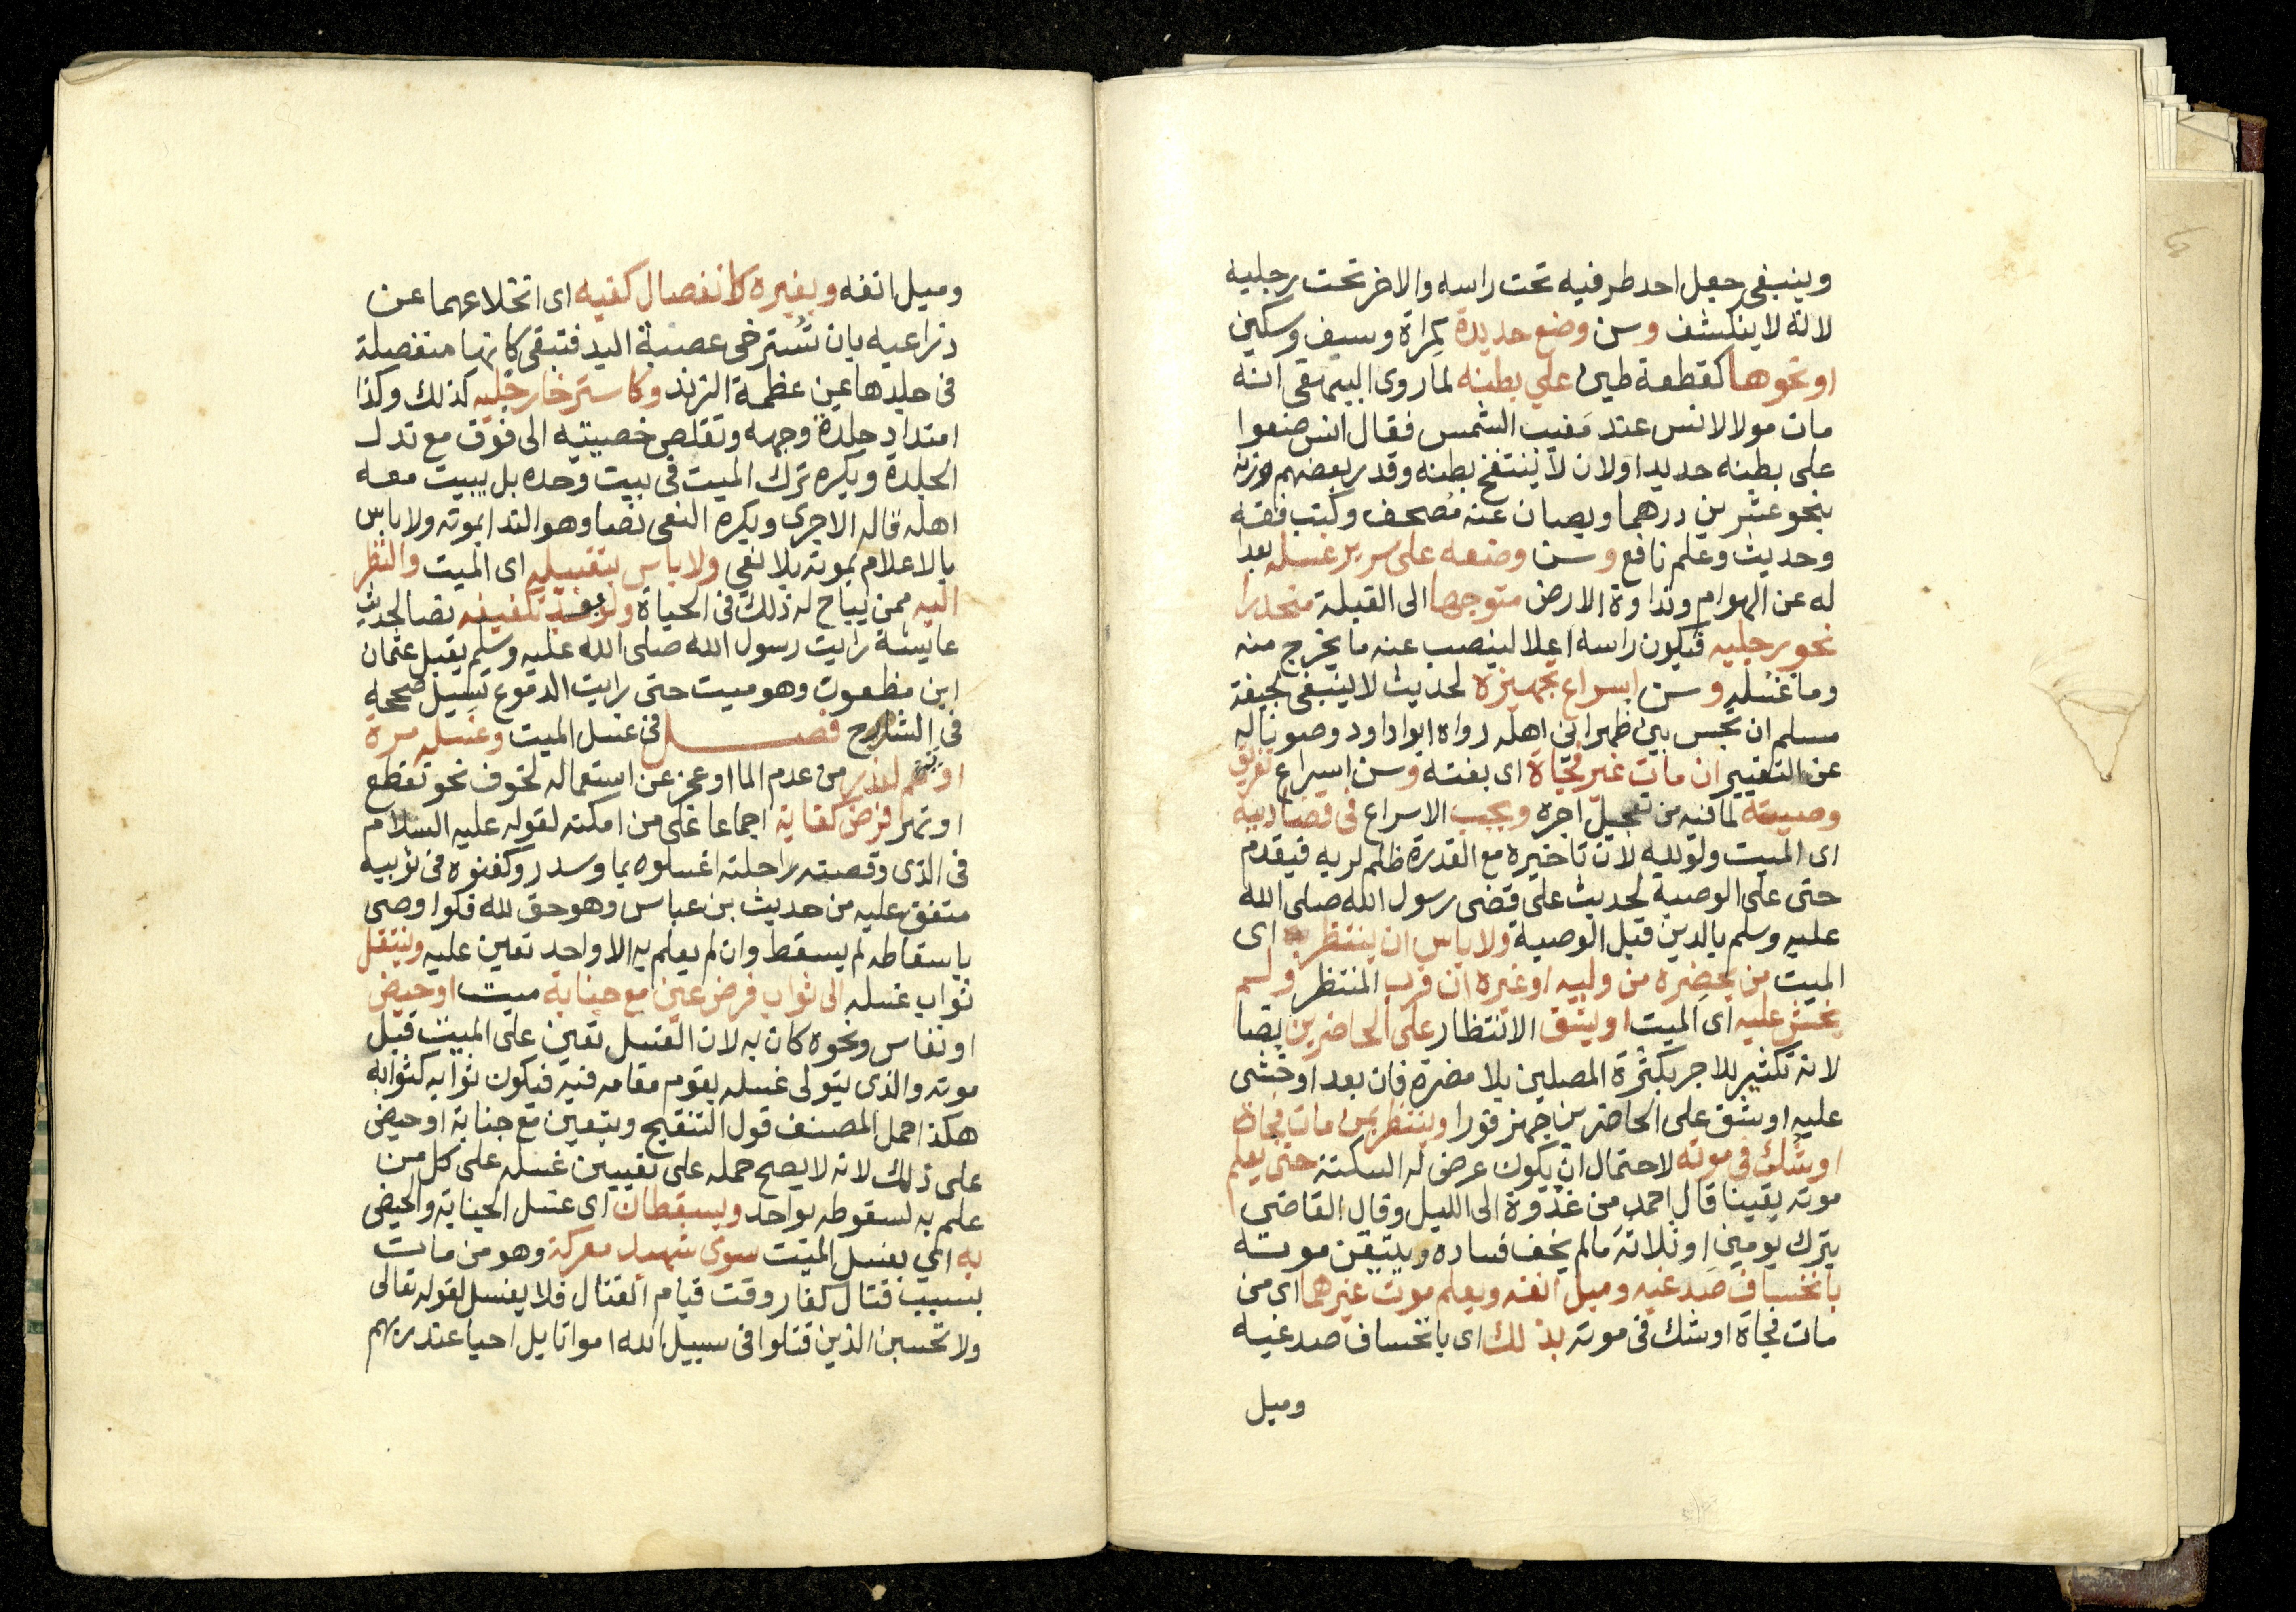 وينبغي جعل احد طرفيه تحت راسه والاخر تحت رجليه
لانه لا ينكشف وسن وضع حديدة كمراة وسيف وسكين
او نحوها كقطعة طين على بطنه لما روى البيهقي انه
مات مولا لانس عند مغيب الشمس فقال انس ضعوا
على بطنه حديدا ولان لا ينتفخ بطنه وقدر بعضهم وزنه
بنحو عشرين درهما ويصان عنه مصحف وكتب فقه
وحديث وعلم نافع وسن وضعه على سرير غسله بعدا
له عن الهوام ونداوة الارض متوجها الى القبلة منحدرا
نحو رجليه فيكون راسه اعلا لينصب عنه ما يخرج منه
وما غسله وسن اسراع تجهيزه لحديث لا ينبغي لجيفة
مسلم ان تحبس بين ظهراني اهله رواه ابوا داود وصونا له
عن التغيير ان مات غير فجاة اى بغتة وسن اسراع تفريق
وصيته لما فيه من تعجيل اجره ويجب الاسراع فى قضا دينه
اى الميت ولو لله لان تاخيره مع القدرة ظلم لربه فيقدم
حتى على الوصية لحديث على قضى رسول الله صلى الله
عليه وسلم بالدين قبل الوصية ولا باس ان ينتظر به اى
الميت من يحضره من وليه او غيره ان قرب المنتظر ولم
يخش عليه اى الميت او يشق الانتظار على الحاضرين نصا
لانه تكثير للاجر بكثرة المصلين بلا مضرة فان بعد او خشى
عليه او شق على الحاضرين جهز فورا وينتظر بمن مات فجاة
او شك فى موته لاحتمال ان يكون عرض له السكتة حتى يعلم
موته يقينا قال احمد من غدوة الى الليل وقال القاضى
يترك يومين او ثلاثة ما لم يخف فساده ويتيقن موته
بانخساف صدغيه وميل انفه ويعلم موت غيرهما اى من
مات فجاة او شك فى موته بذلك اى بانخساف صدغيه
وميل
وميل انفه وبغيره كانفصال كفيه اى انخلاعهما عن
ذراعيه بان تسترخى عصبة اليد فتبقى كانها منفصلة
فى جلدها عن عظمة الزند وكاسترخا رجليه كذلك وكذا
امتداد جلدة وجهه وتقلص خصيتيه الى فوق مع تدلـ
الجلدة ويكره ترك الميت فى بيت وحده بل يبيت معه
اهله قاله الاجرى ويكره النعى نصا وهو الندا بموته ولا باس
بالاعلام بموته بلا نعى ولا باس بتقبيله اى الميت والنظر
اليه ممن يباح له ذلك فى الحياة ولو بعد تكفينه نصا لحديث
عايشة رايت رسول الله صلى الله عليه وسلم يقبل عثمان
ابن مظعون وهو ميت حتى رايت الدموع تسيل صححه
فى الشارح فصل فى غسل الميت وغسله مرة
او يمم لعذر من عدم الما او عجز عن استعماله لخوف نحو تقطع
او تهر فرض كفاية اجماعا على من امكنه لقوله عليه السلام
فى الذى وقصته راحلته اغسلوه بما وسدر وكفنوه فى ثوبيه
متفق عليه من حديث بن عباس وهو حق لله فلوا وصى
باسقاطه لم يسقط وان لم يعلم به الا واحد تعين عليه وينتقل
ثواب غسله الى ثواب فرض عين مع جنابة ميت او حيض
او نفاس ونحوه كان به لان الغسل تعين على الميت قبل
موته والذى يتولى غسله يقوم مقامه فيه فيكون ثوابه كثوابه
هكذا حمل المصنف قول التنقيح ويتعين مع جنابة او حيض
على ذلك لانه لا يصح حمله على تعيين غسله على كل من
علم به لسقوطه بواحد ويسقطان اى غسل الجنابة والحيض
به اى بغسل الميت سوى شهيد معركة وهو من مات
بسبب قتال كفار وقت قيام القتال فلا يغسل لقوله تعالى
ولا تحسبن الذين قتلوا فى سبيل الله امواتا بل احيا عند ربهم